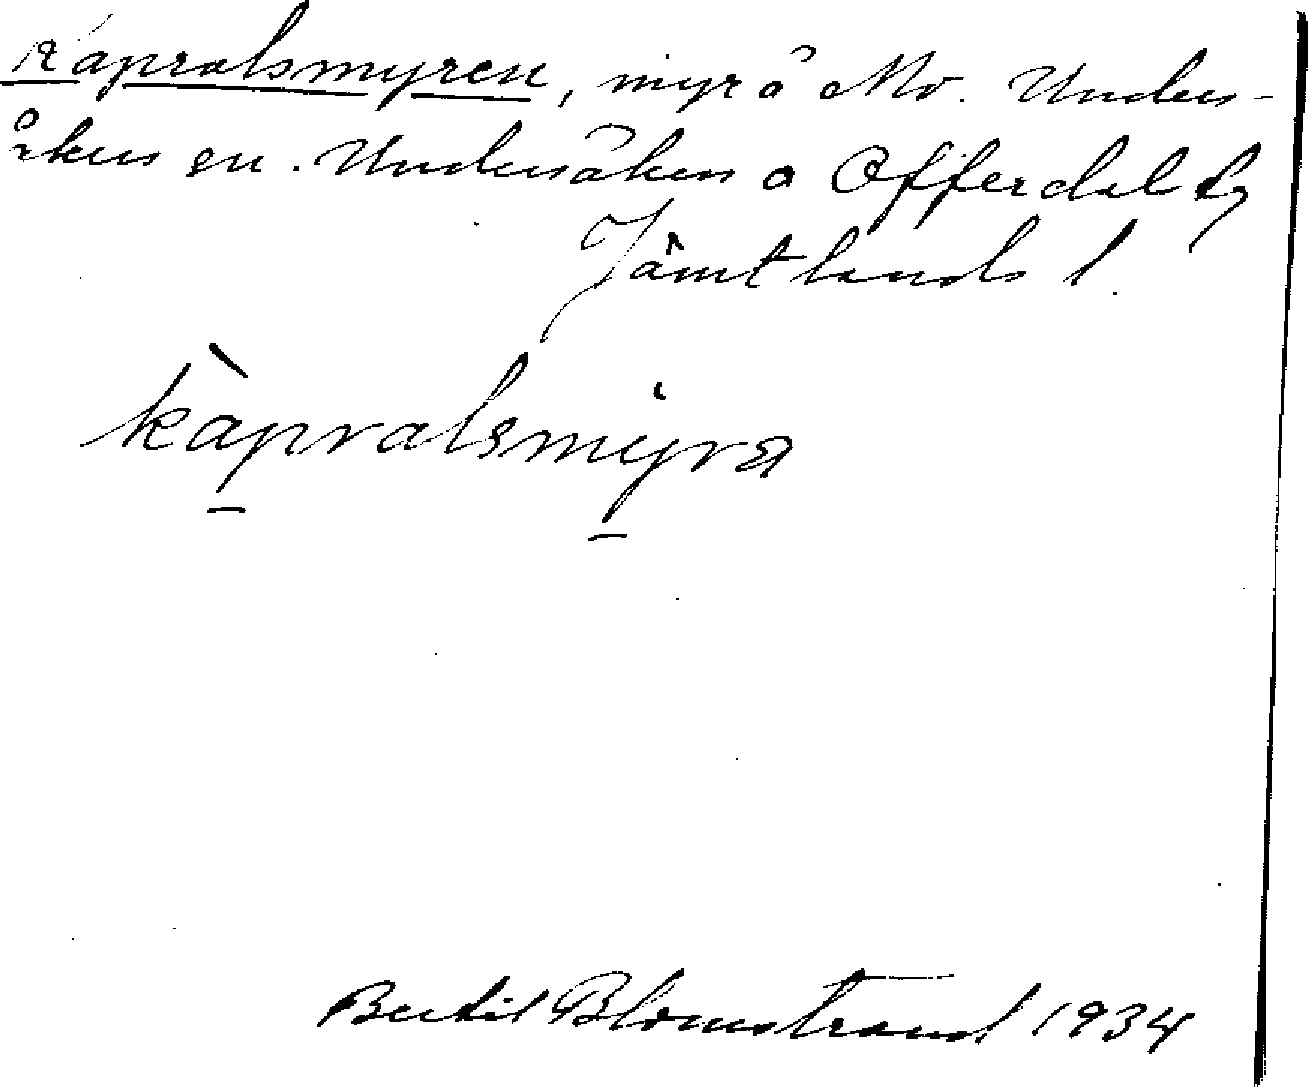 Kapralsmyren, myr å Mo. Under-
åkers sn. Undersåkers o Offerdal tg
Jämtlands l.
kàpralsmyra
Bertil Blomstrand 1934